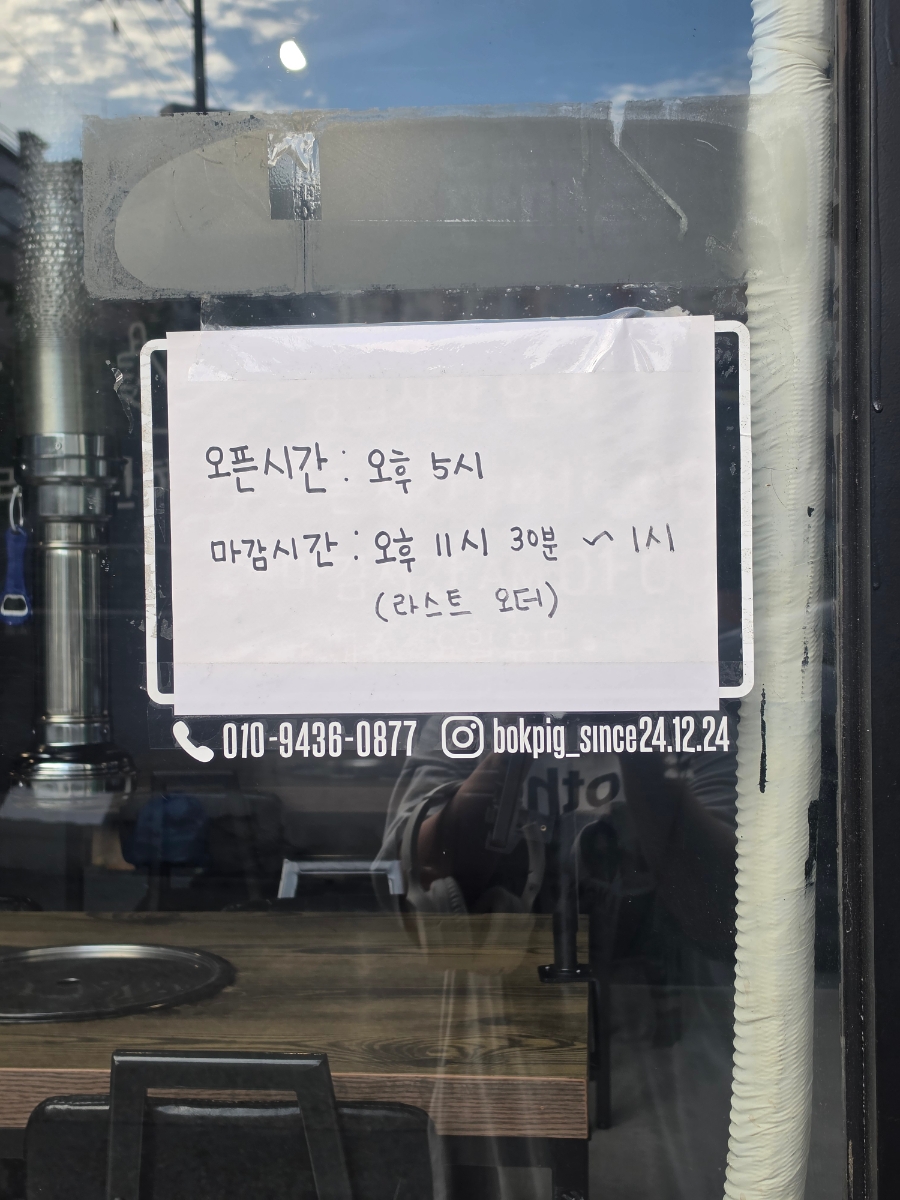 오픈시간 : 오후 5시
마감시간 : 오후 11시 30분 ~ 1시
(라스트 오더)
010-9436-0877 bokpig_since24.12.24